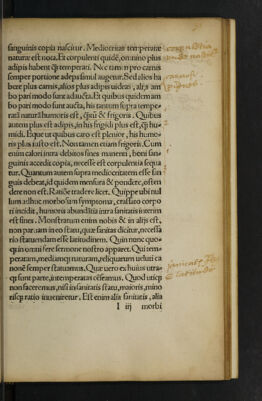 sanguinis copia nascitur. Mediocritas temperatæ
naturæ est nota. Et corpulenti quidē, omnino plus
adipis habent q̃ temperati. Nec tamen pro carnis
semper portione adeps simul augetur. Sed alios ha
bere plus carnis, alios plus adipis uideas, alijs am
bo pari modo sunt adaucta. Et quibus quidem am
bo pari modo sunt aucta, his tantum supra tempe
ratā naturā humoris est, & frigoris. Quibus
autem plus est adipis, in his frigidi plus est, q̃ hu-
midi. Eque ut quibus caro est plenior, his humo-
ris plus iusto est. Non tamen etiam frigoris. Cum
enim calori intra debitos fines manenti, boni san-
guinis accedit copia, necesse est corpulentia sequa
tur. Quantum autem supra mediocritatem esse san
guis debeat, id quidem mensura & pondere, osten
dere non est. Ratiōe tradere licet. Quippe ubi nul
lum adhuc morbosum symptoma, crassiore corpo
ri incidit, humoris abundātia intra sanitatis inueni
tur fines. Monstratum enim nobis & in alijs est,
non paruam in eo statu, quæ sanitas dicitur, necessa
rio statuendam esse latitudinem. Quin nunc quo-
qʒ in omni fere sermone nostro apparet. Qui tem-
peratam, mediamqʒ naturam, reliquarum ueluti ca
nonē semper statuamus. Quæ uero ex huius utra-
qʒ sunt parte, intemperatas cēseamus. Quod utiqʒ
non faceremus, nisi in sanitatis statu, maioris, mino
risqʒ ratio inueniretur. Est enim alia sanitatis, alia
I iij morbi